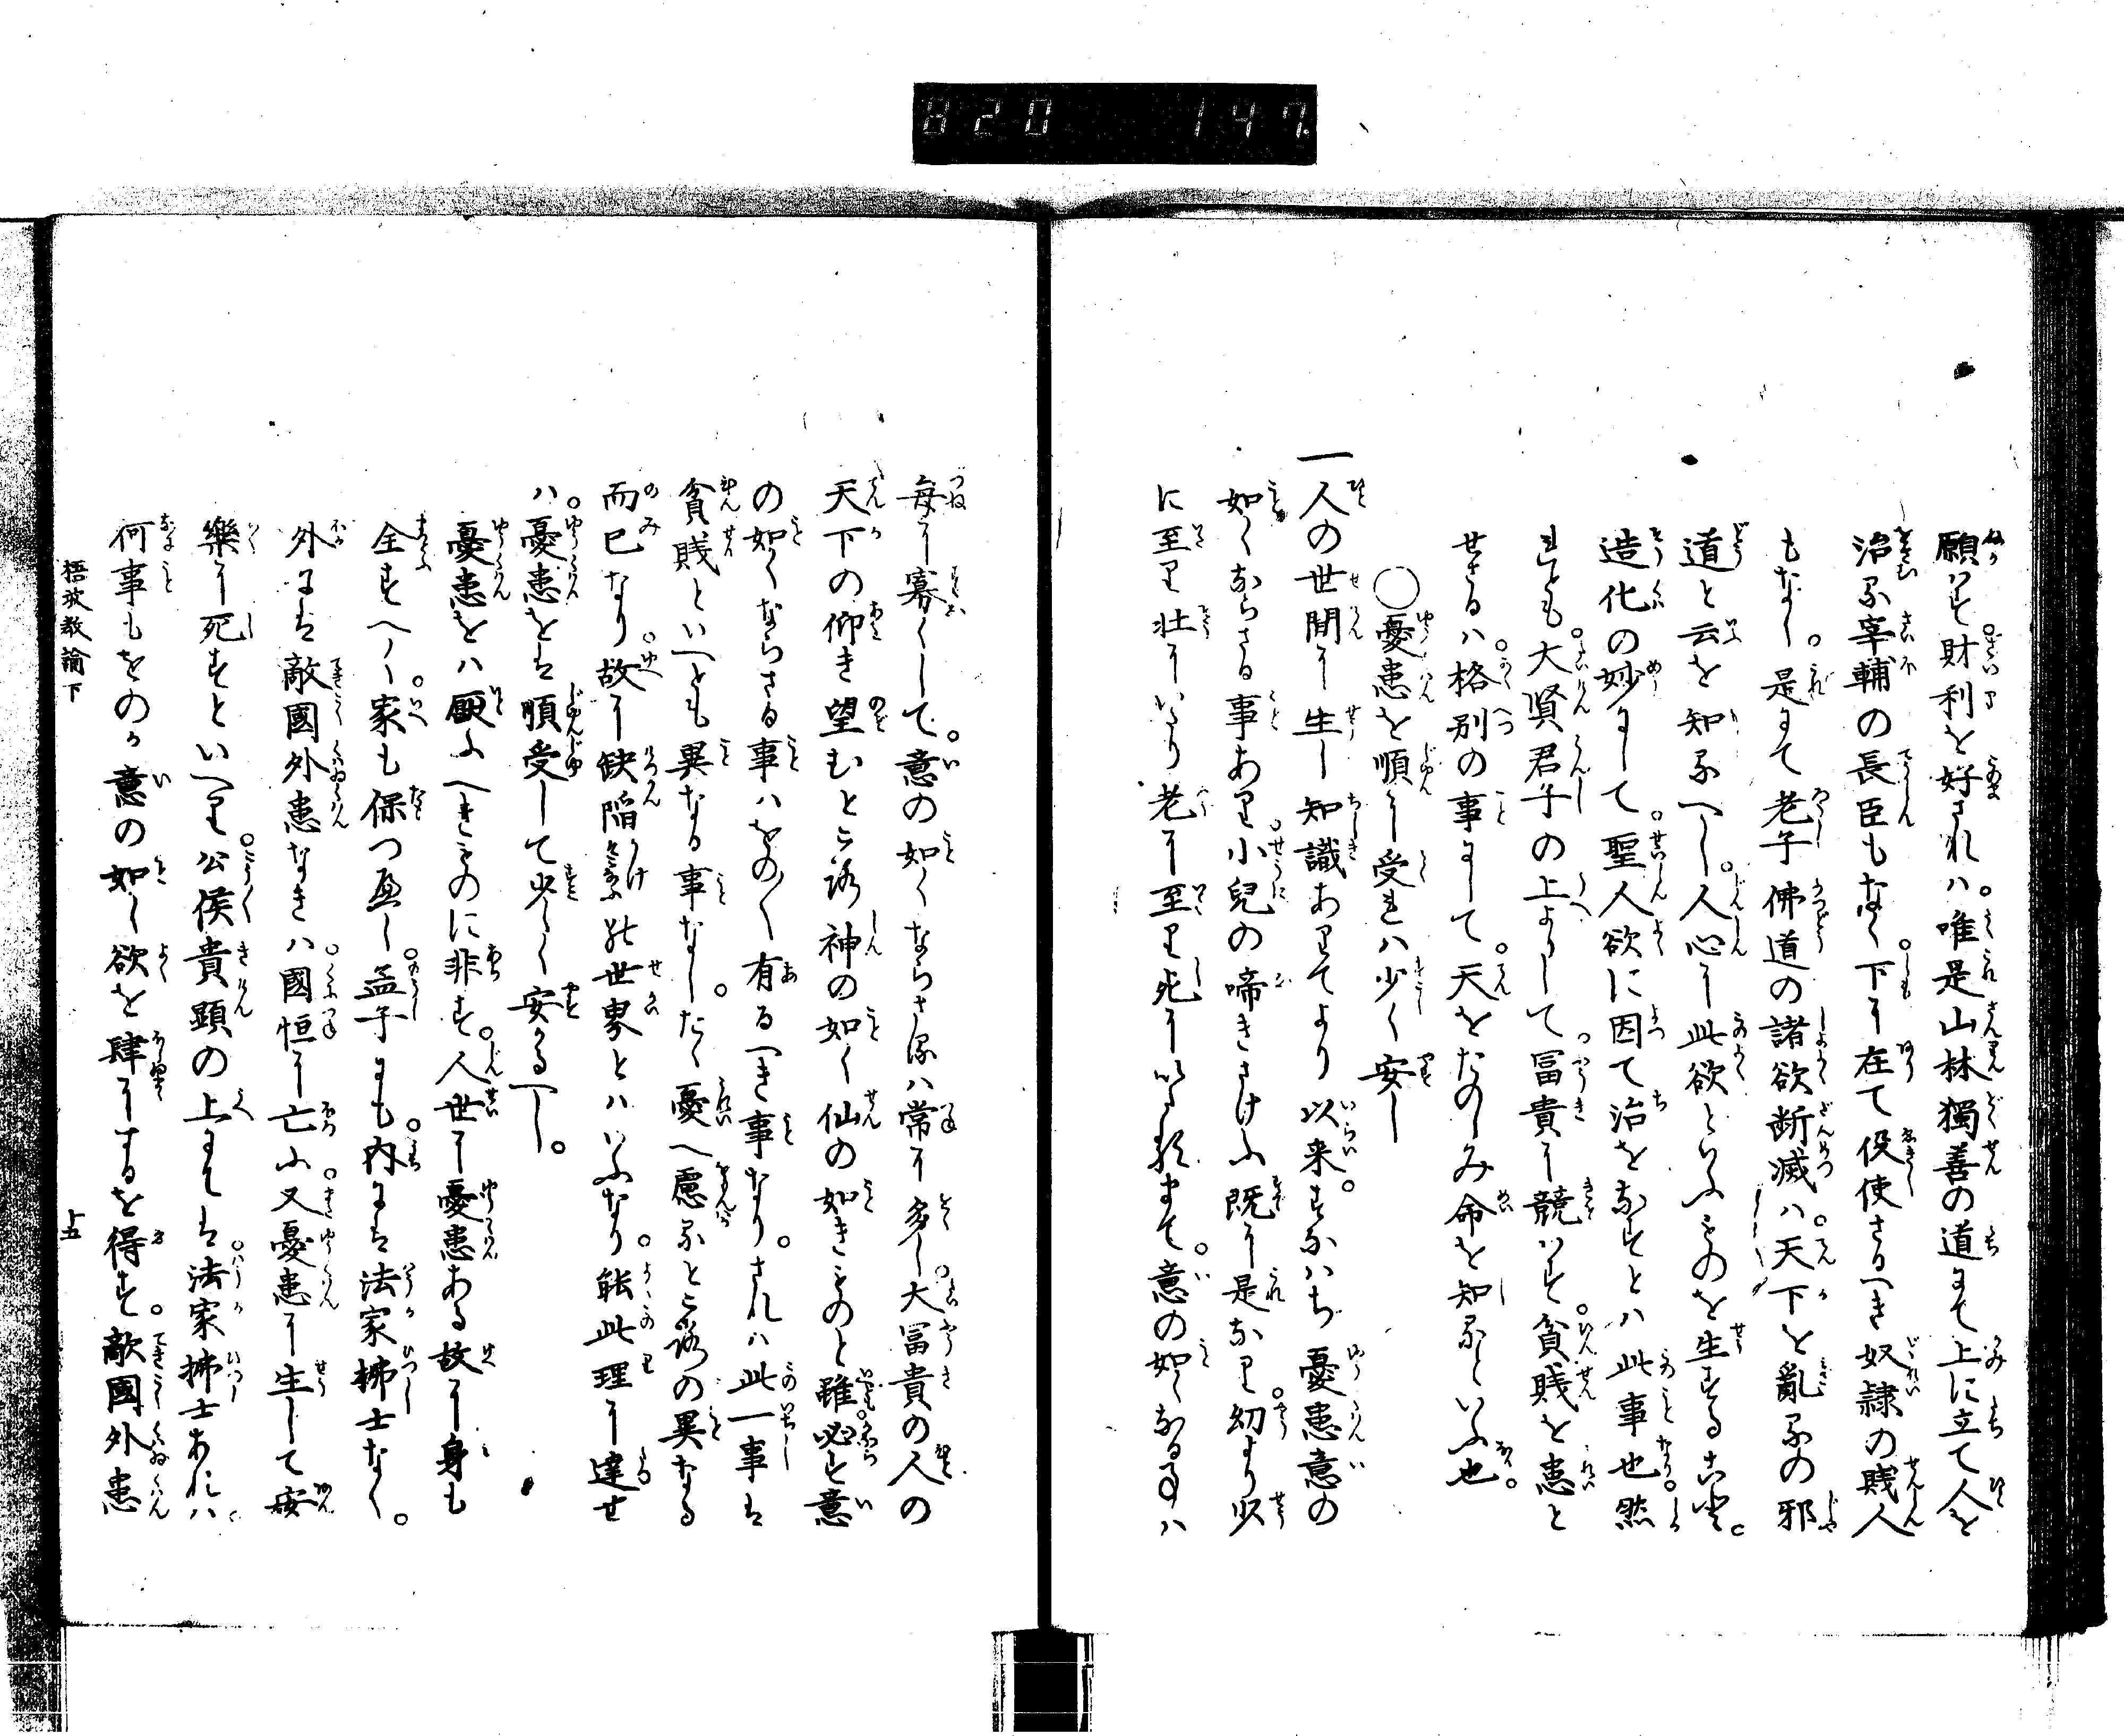 820 147
願はす財利を好されハ。唯是山林獨善の道にて上に立て人を
治る宰輔の長臣もなく下に在て役使さるへき奴隷の賤人
もなし。是にて老子佛道の諸欲断滅ハ。天下を亂るの邪
道と云を知るへし。人心に此欲といふものを生する
造化の妙にして。聖人欲に因て治をなすとハ此事也。然
れとも。大賢君子の上よりして富貴に競はす。貧賤を患と
せさるハ。格別の事にして。天をたのしみ命を知るといふ也。
○憂患を順に受れハ少く安し
一人の世間に生し知識ありてより以来。すなはち憂患意の
如くならさる事あり。小兒の啼きさけふ既に是なり。幼より少
に至り壮にいたり老に至り死にいたるまて。意の如くなる事ハ
毎に寡くして。意の如くならさるハ常に多し。大冨貴の人の
天下の仰き望むところ神の如く仙の如きものと雖。必す意
の如くならさる事ハをの〱有るへき事なり。されハ此一事は
貧賤といへとも異なる事なし。たゝ憂へ慮るところの異なる
而已なり。故に缺陥の世界とハいふなり。能此理に達せ
ハ。憂患をは順受して少く安かるへし。
憂患をハ厭ふへきものに非す。人世に憂患ある故に身も
全すへく。家も保つ也。孟子にも。内には法家拂士なく。
外には敵國外患なきハ。國恒に亡ふ。又憂患に生して安
樂に死すといへり。公侯貴顕の上にては法家拂士あれハ。
何事もをのか意の如く欲を肆にするを得す。敵國外患
教諭下
上五